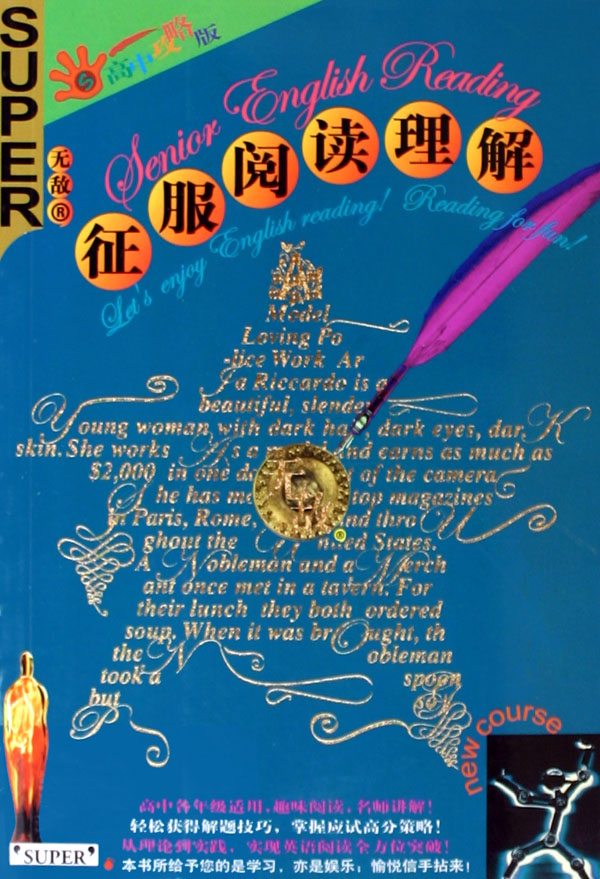 SUPER
无敌®
高中攻略版
Senior English Reading
征服阅读理解
Let's enjoy English reading! Reading for fun!
An
Model
Loving Po
-lice Work Ar
a Riccardo is a
beautiful, slender
Young woman with dark ha , dark eyes, darK
skin. She works As a and earns as much as
$2,000 in one d of the camera
she has m top magazines
in Paris, Rome, and thro U
ghout the United States.
A Nobleman and a Merch
ant once met in a tavern. For
their lunch they both ordered
soup. When it was brOught, th
the Nobleman
took a spoon
but
®
new course
高中各年级适用,趣味阅读,名师讲解!
轻松获得解题技巧,掌握应试高分策略!
从理论到实践,实现英语阅读全方位突破!
本书所给予您的是学习,亦是娱乐;愉悦信手拈来!
'SUPER'